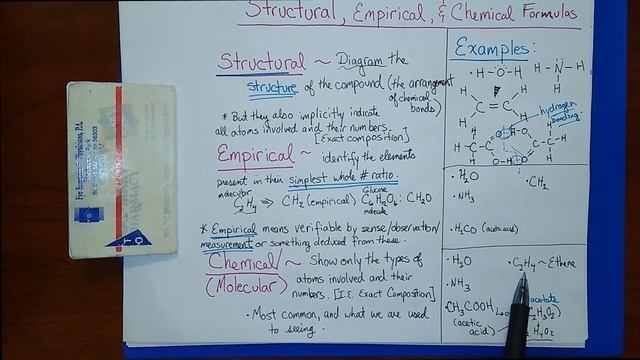 Structural, Empirical, & Chemical Formulas
Structural ~ Diagram the
structure of the compound (the arrangement
of chemical
bonds)
* But they also implicitly indicate
all atoms involved and their numbers.
[Exact composition]
Empirical ~ identify the elements
present in their simplest whole # ratio.
molecular
C2H4 ⇒ CH2 (empirical)
Glucose
C6H12O6 : CH2O
molecule
* Empirical means verifiable by sense/observation/
measurement or something deduced from these.
Chemical/ ~ Show only the types of
(Molecular) atoms involved and their
numbers. [I.E. Exact Composition]
• Most common, and what we are used
to seeing.
Examples:
• H-O-H
H-N-H
H
H H
C=C
H H
hydrogen
bonding
• H2O
• CH2
• NH3
• H2CO (acetic acid)
• H2O
• C2H4 ~ Ethene
• NH3
• CH3COOH
acetate
(acetic
acid)